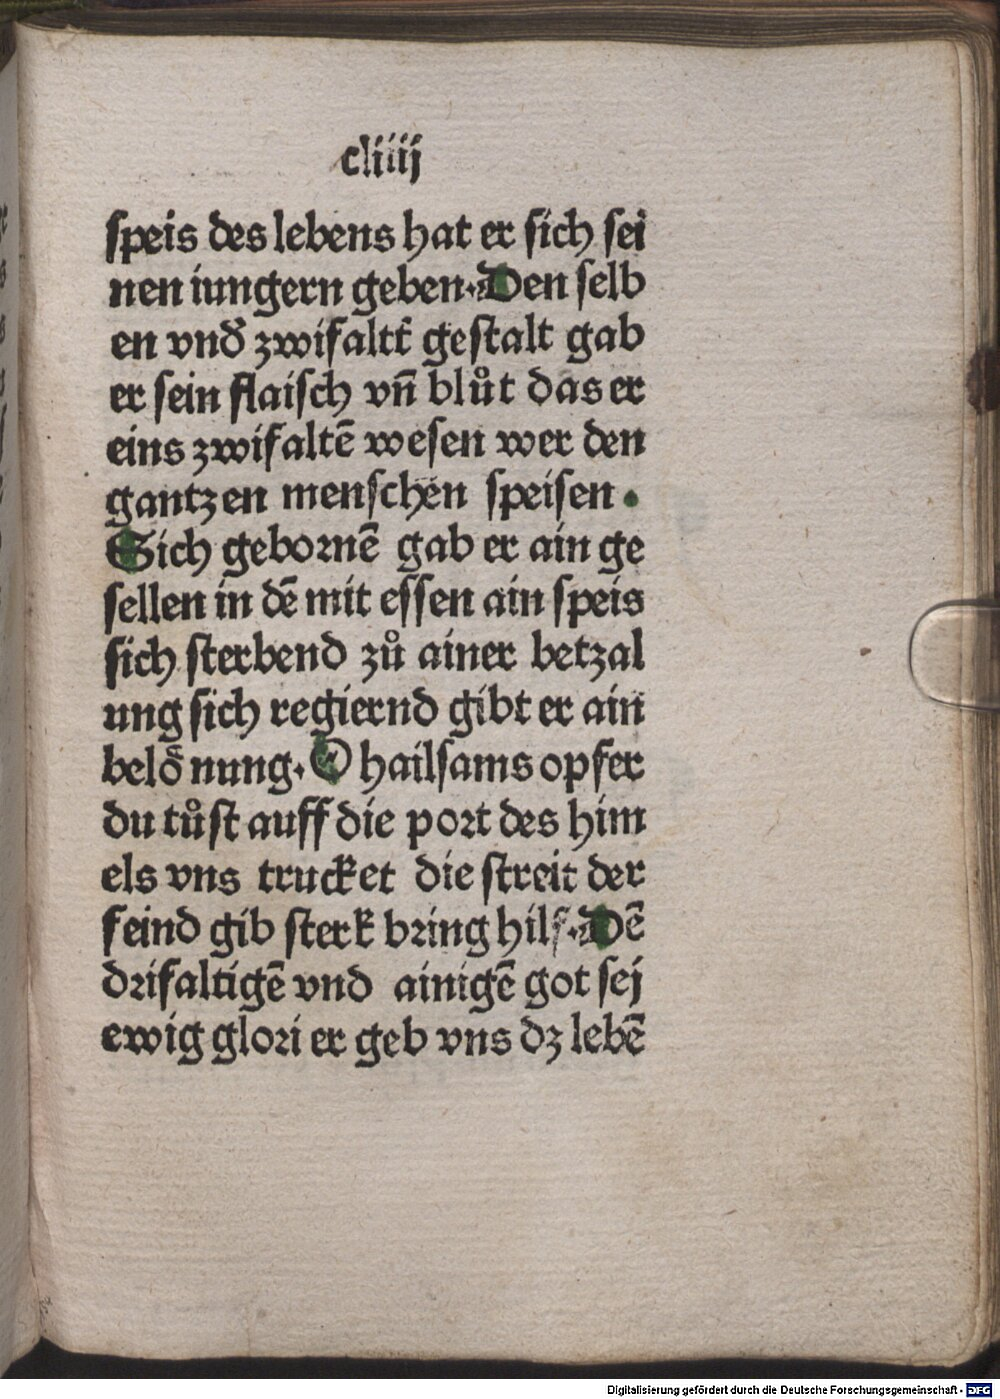 cliiij
speis des lebens hat er sich sei
nen iungern geben. Den selb
en vnd̕ zwifaltt̕ gestalt gab
er sein flaisch vn̄ blůt das er
eins zwifaltē wesen wer den
gantzen menschen speisen .
Sich gebornē gab er ain ge
sellen in dē mit essen ain speis
sich sterbend zů ainer betzal
ung sich regiernd gibt er ain
beloͤnung. O hailsams opfer
du tůst auff die port des him
els vns trucket die streit der
feind gib sterk bring hilf. Dē
drifaltigē vnd ainigē got sej
ewig glori er geb vns dz lebē
Digitalisierung gefördert durch die Deutsche Forschungsgemeinschaft - DFG